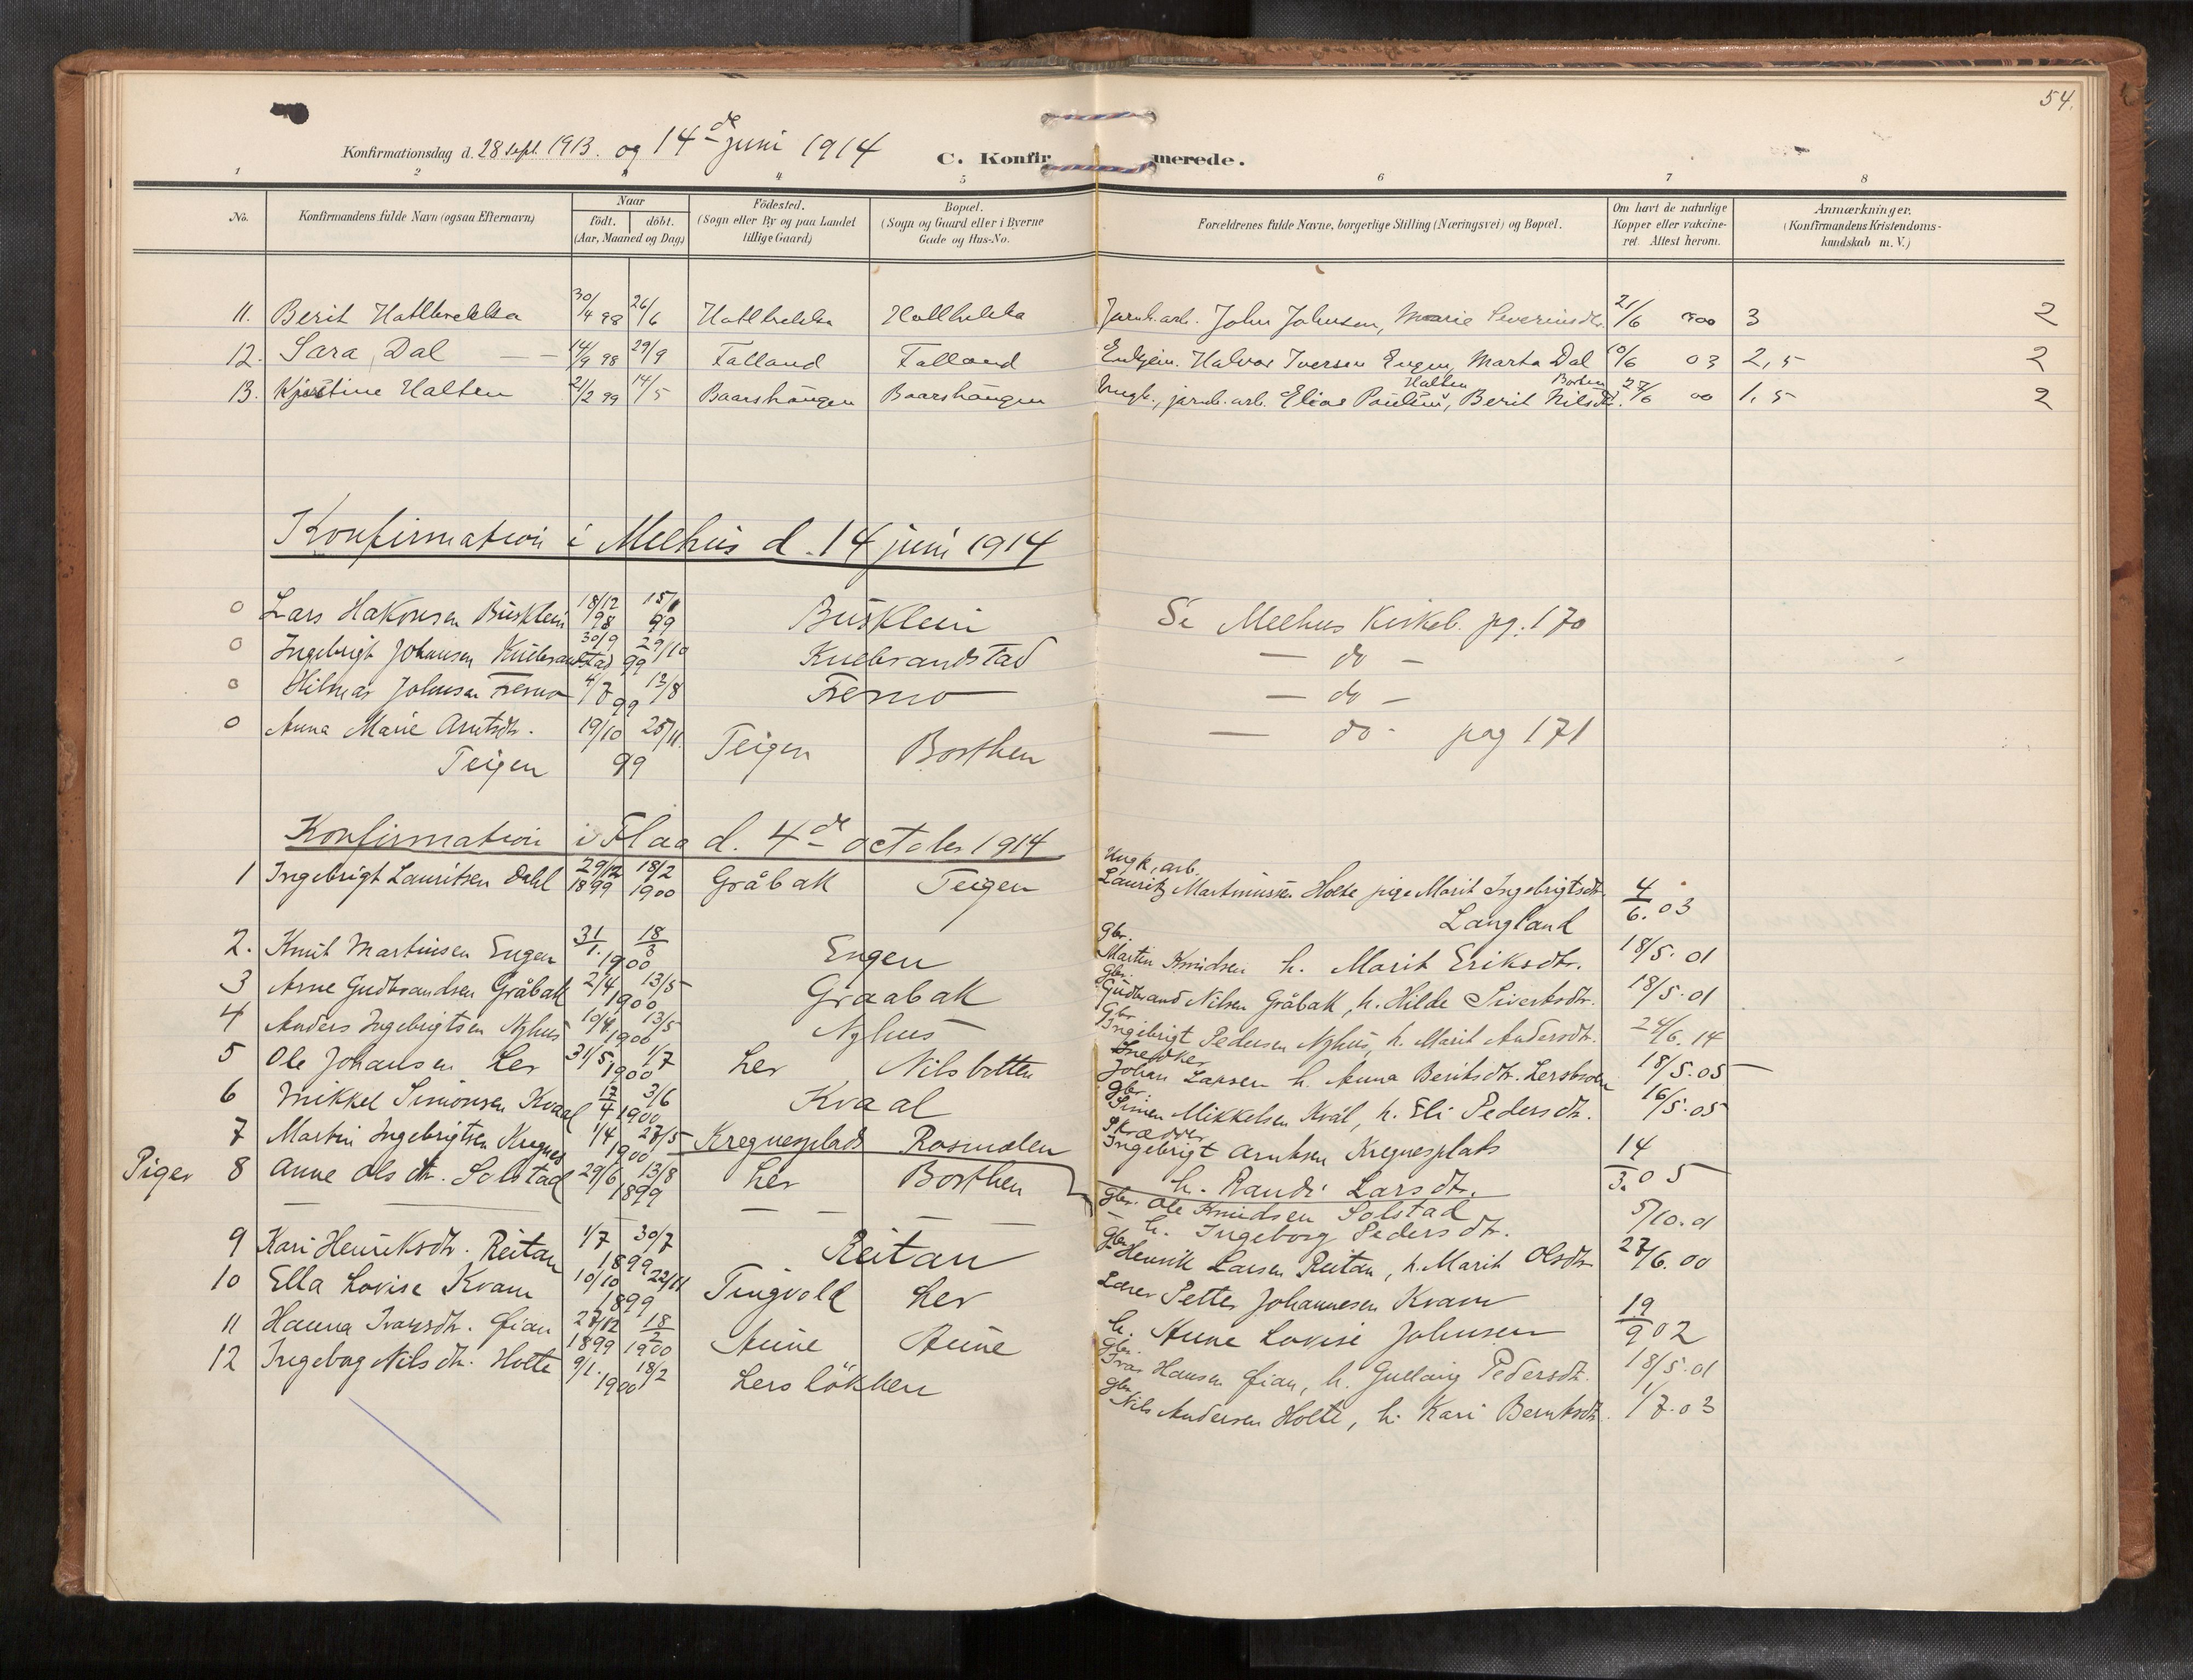 54.
Konfirmationsdag d. 28 sept. 1913. og 14de juni 1914
C. Konfirmerede.
1 2 3 4 5 6 7 8
No. Konfirmandens fulde Navn (ogsaa Efternavn) Naar födt. döbt. (Aar, Maaned og Dag) Födested. (Sogn eller By og paa Landet tillige Gaard) Bopæl. (Sogn og Gaard eller i Byerne Gade og Hus-No. Forældrenes fulde Navne, borgerlige Stilling (Næringsvei) og Bopæl. Om havt de naturlige Kopper eller vakcineret. Attest herom. Anmærkninger. (Konfirmandens Kristendomskundskab m. V.)
11. Berit Hallbrekka 30/4 98 26/6 Hallbrekka Hallbrekka Jarnb. arb. John Johnsen, Marie Severinsdtr. 21/6 00 3 2
12. Sara Dal 14/9 98 29/9 Folland Folland Halvor Iversen Engen, Marta Dal 10/6 03 2,5 2
13. Kjestine Halten 21/2 99 14/5 Baarshaugen Baarshaugen Ungk., jarnb. arb. Elias Paulsen Halten, Berit Nilsdtr. Borten 27/6 00 1,5 2
Konfirmation i Melhus d. 14 juni 1914
o Lars Hakonsen Busklein 18/12 98 15/1 99 Busklein Se Melhus Kirkeb. pg. 170
o Ingebrigt Johansen Kuebrandstad 30/9 29/10 99 Kuebrandstad — do —
o Hilmar Johnsen Fremo 4/7 13/8 99 Fremo — do —
o Anna Marie Arntsdtr. Teigen 19/10 25/11 99 Teigen Borthen — do - pag 171
Konfirmation i Flaa d. 4de october 1914
1 Ingebrigt Lauritsen Dahl 29/12 1899 18/2 1900 Gråbak Teigen Ungk, arb. Lauritz Martinussen Holte pige Marit Ingebrigtsdtr. Langland 4/6. 03
2. Knut Martinsen Engen 31/1. 18/3 1900 Engen Gbr. Martin Knudsen h. Marit Eriksdtr. 18/5. 01
3 Arne Gudbrandsen Gråbak 2/4 13/5 1900 Graabak Gbr. Gudbrand Nilsen Gråbak, h. Hilde Sivertsdtr. 18/5. 01
4 Anders Ingebrigtsen Nyhus 10/4. 13/5 1900 Nyhus Gbr Ingebrigt Pedersen Nyhus, h. Marit Andersdtr. 24/6. 14
5 Ole Johansen Ler 31/5. 1/7 1900 Ler Nilsbotten Snedker Johan Larsen h. Anna Beritsdtr. 18/5. 05
6 Mikkel Simonsen Kvaal 17/4 3/6 1900 Kvaal Gbr. Simen Mikkelsen Kvål, h. Eli Pedersdtr. 16/5. 05
7 Martin Ingebrigtsen Kregnes 1/4 27/5 1900 Kregnesplads Rosmælen Skrædder Ingebrigt Arntsen Kregnesplats h. Randi Larsdtr. 14/3. 05
Piger 8 Anne Olsdtr. Solstad 29/6 13/8 1899 Ler Borthen Gbr. Ole Knudsen Solstad h. Ingeborg Pedersdtr. 5/10. 01
9 Kari Henriksdtr. Reitan 1/7 30/7 1899 Reitan Gbr. Henrik Larsen Reitan, h. Marit Olsdtr. 27/6. 00
10 Ella Lovise Kvam 10/10 22/11 1899 Tingvold Ler Lærer Petter Johannesen Kvam h. Anne Lovise Johnsen 19/9 02
11 Hanna Ivarsdtr. Gian 27/12 1899 18/2 1900 Aune Aune Gbr. Ivar Hansen Gian, h. Gullaug Pedersdtr. 18/5. 01
12 Ingebog Nilsdtr. Holte 9/1. 18/2 1900 Lersløkken Gbr. Nils Andersen Holte, h. Kari Berntsdtr. 1/7. 03